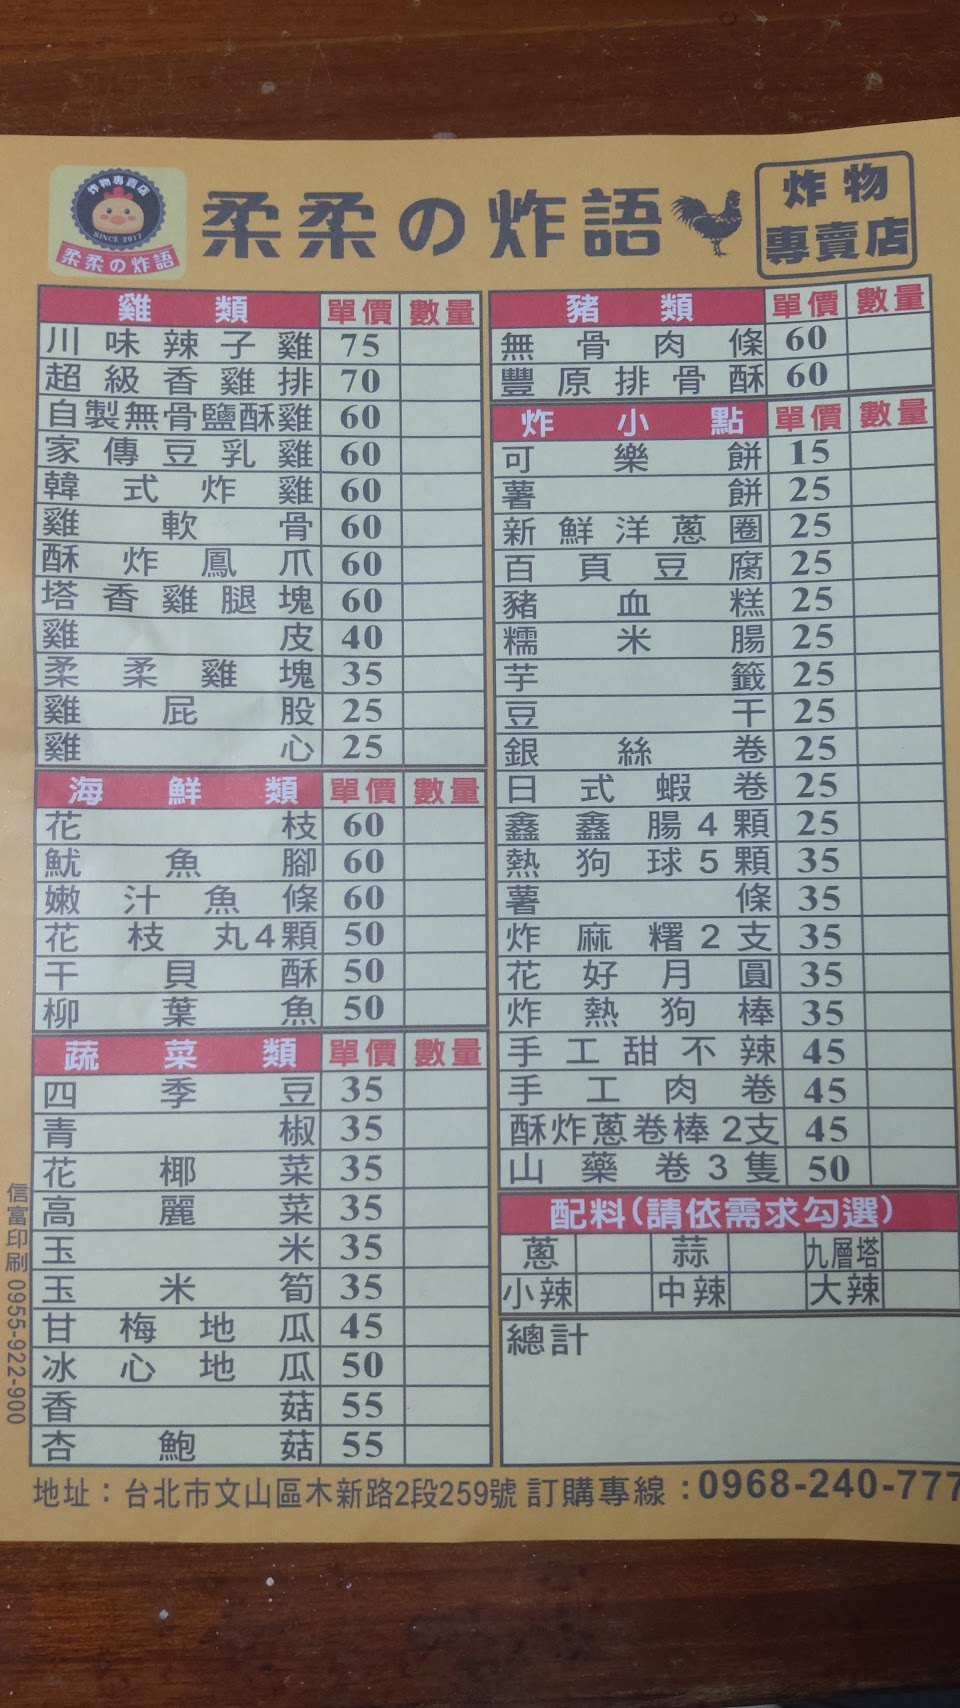 炸物專賣店
SINCE 2017
柔柔の炸語
柔柔の炸語
炸物
專賣店
雞類 單價 數量
川味辣子雞 75
超級香雞排 70
自製無骨鹽酥雞 60
家傳豆乳雞 60
韓式炸雞 60
雞軟骨 60
酥炸鳳爪 60
塔香雞腿塊 60
雞皮 40
柔柔雞塊 35
雞屁股 25
雞心 25
海鮮類 單價 數量
花枝 60
魷魚腳 60
嫩汁魚條 60
花枝丸4顆 50
干貝酥 50
柳葉魚 50
蔬菜類 單價 數量
四季豆 35
青椒 35
花椰菜 35
高麗菜 35
玉米 35
玉米筍 35
甘梅地瓜 45
冰心地瓜 50
香菇 55
杏鮑菇 55
豬類 單價 數量
無骨肉條 60
豐原排骨酥 60
炸小點 單價 數量
可樂餅 15
薯餅 25
新鮮洋蔥圈 25
百頁豆腐 25
豬血糕 25
糯米腸 25
芋籤 25
豆干 25
銀絲卷 25
日式蝦卷 25
鑫鑫腸4顆 25
熱狗球5顆 35
薯條 35
炸麻糬2支 35
花好月圓 35
炸熱狗棒 35
手工甜不辣 45
手工肉卷 45
酥炸蔥卷棒2支 45
山藥卷3隻 50
配料(請依需求勾選)
蔥 蒜 九層塔
小辣 中辣 大辣
總計
信富印刷 0955-922-900
地址：台北市文山區木新路2段259號 訂購專線：0968-240-777